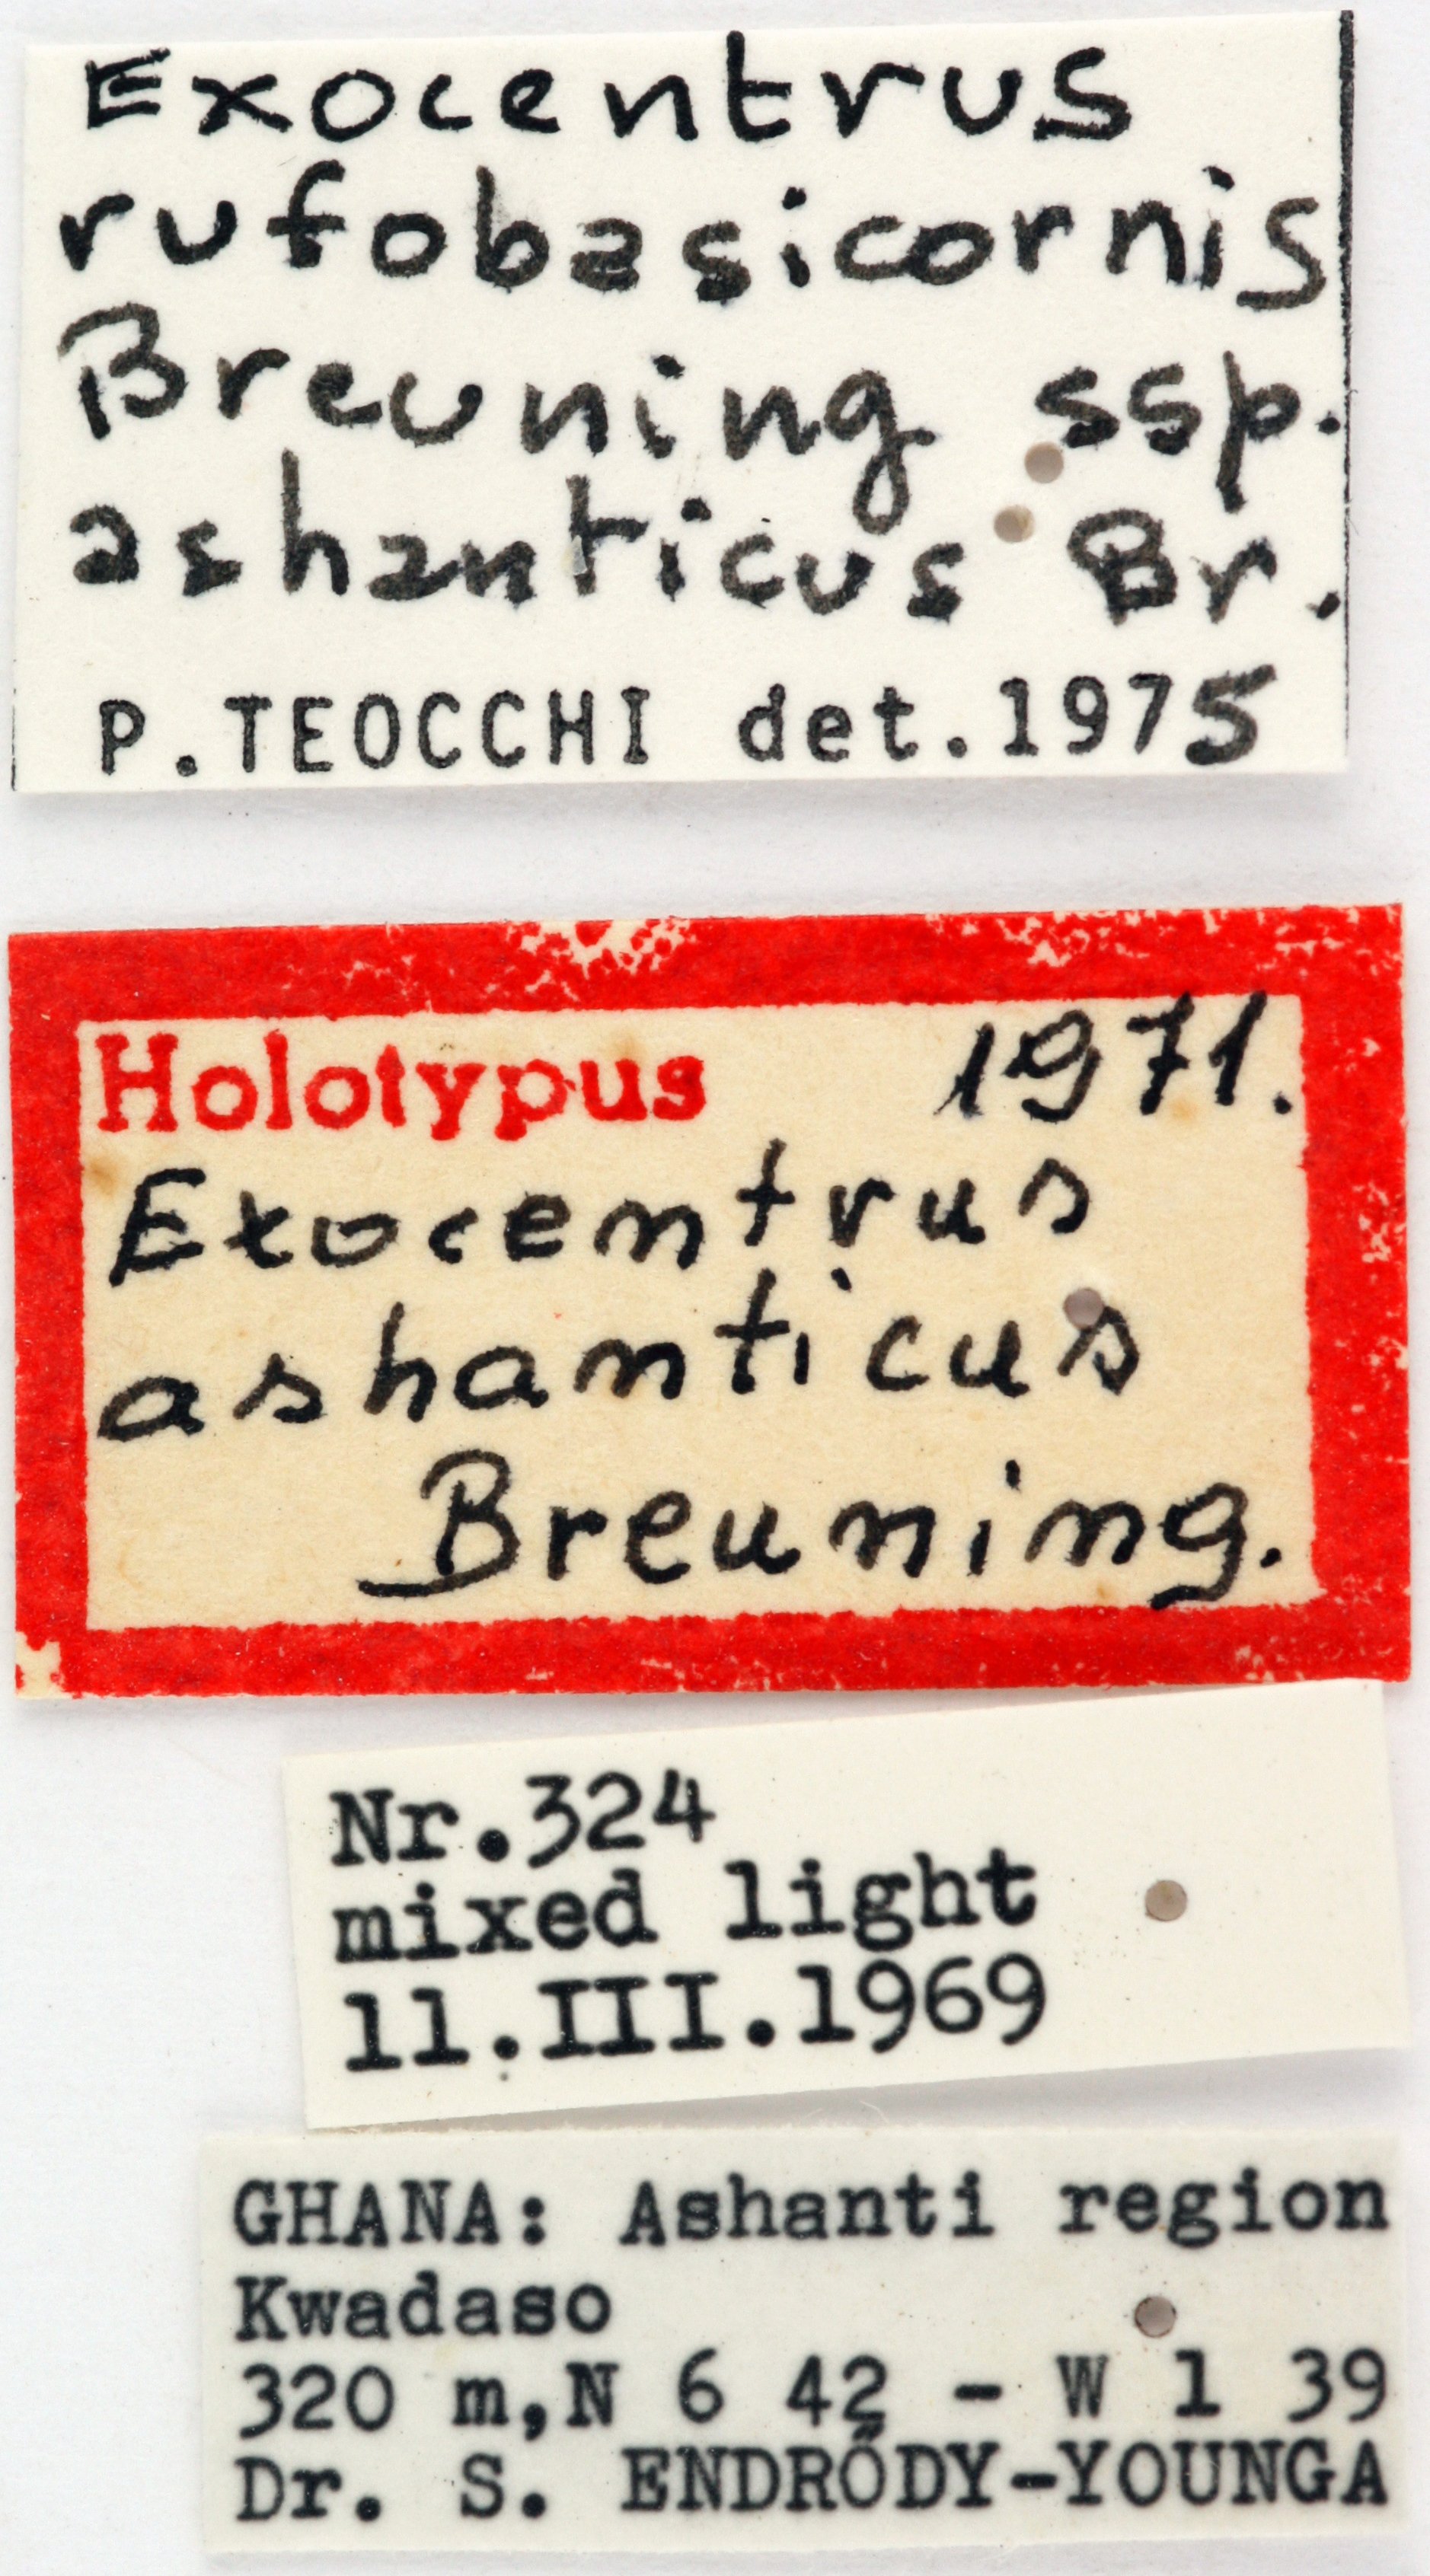 Exocentrus
rufobasicornis
Breuning ssp.
ashanticus Br.
P.TEOCCHI det.1975
Holotypus 1971.
Exocentrus
ashanticus
Breuning.
Nr.324
mixed light
11.III.1969
GHANA: Ashanti region
Kwadaso
320 m,N 6 42 - W 1 39
Dr. S. ENDRŐDY-YOUNGA